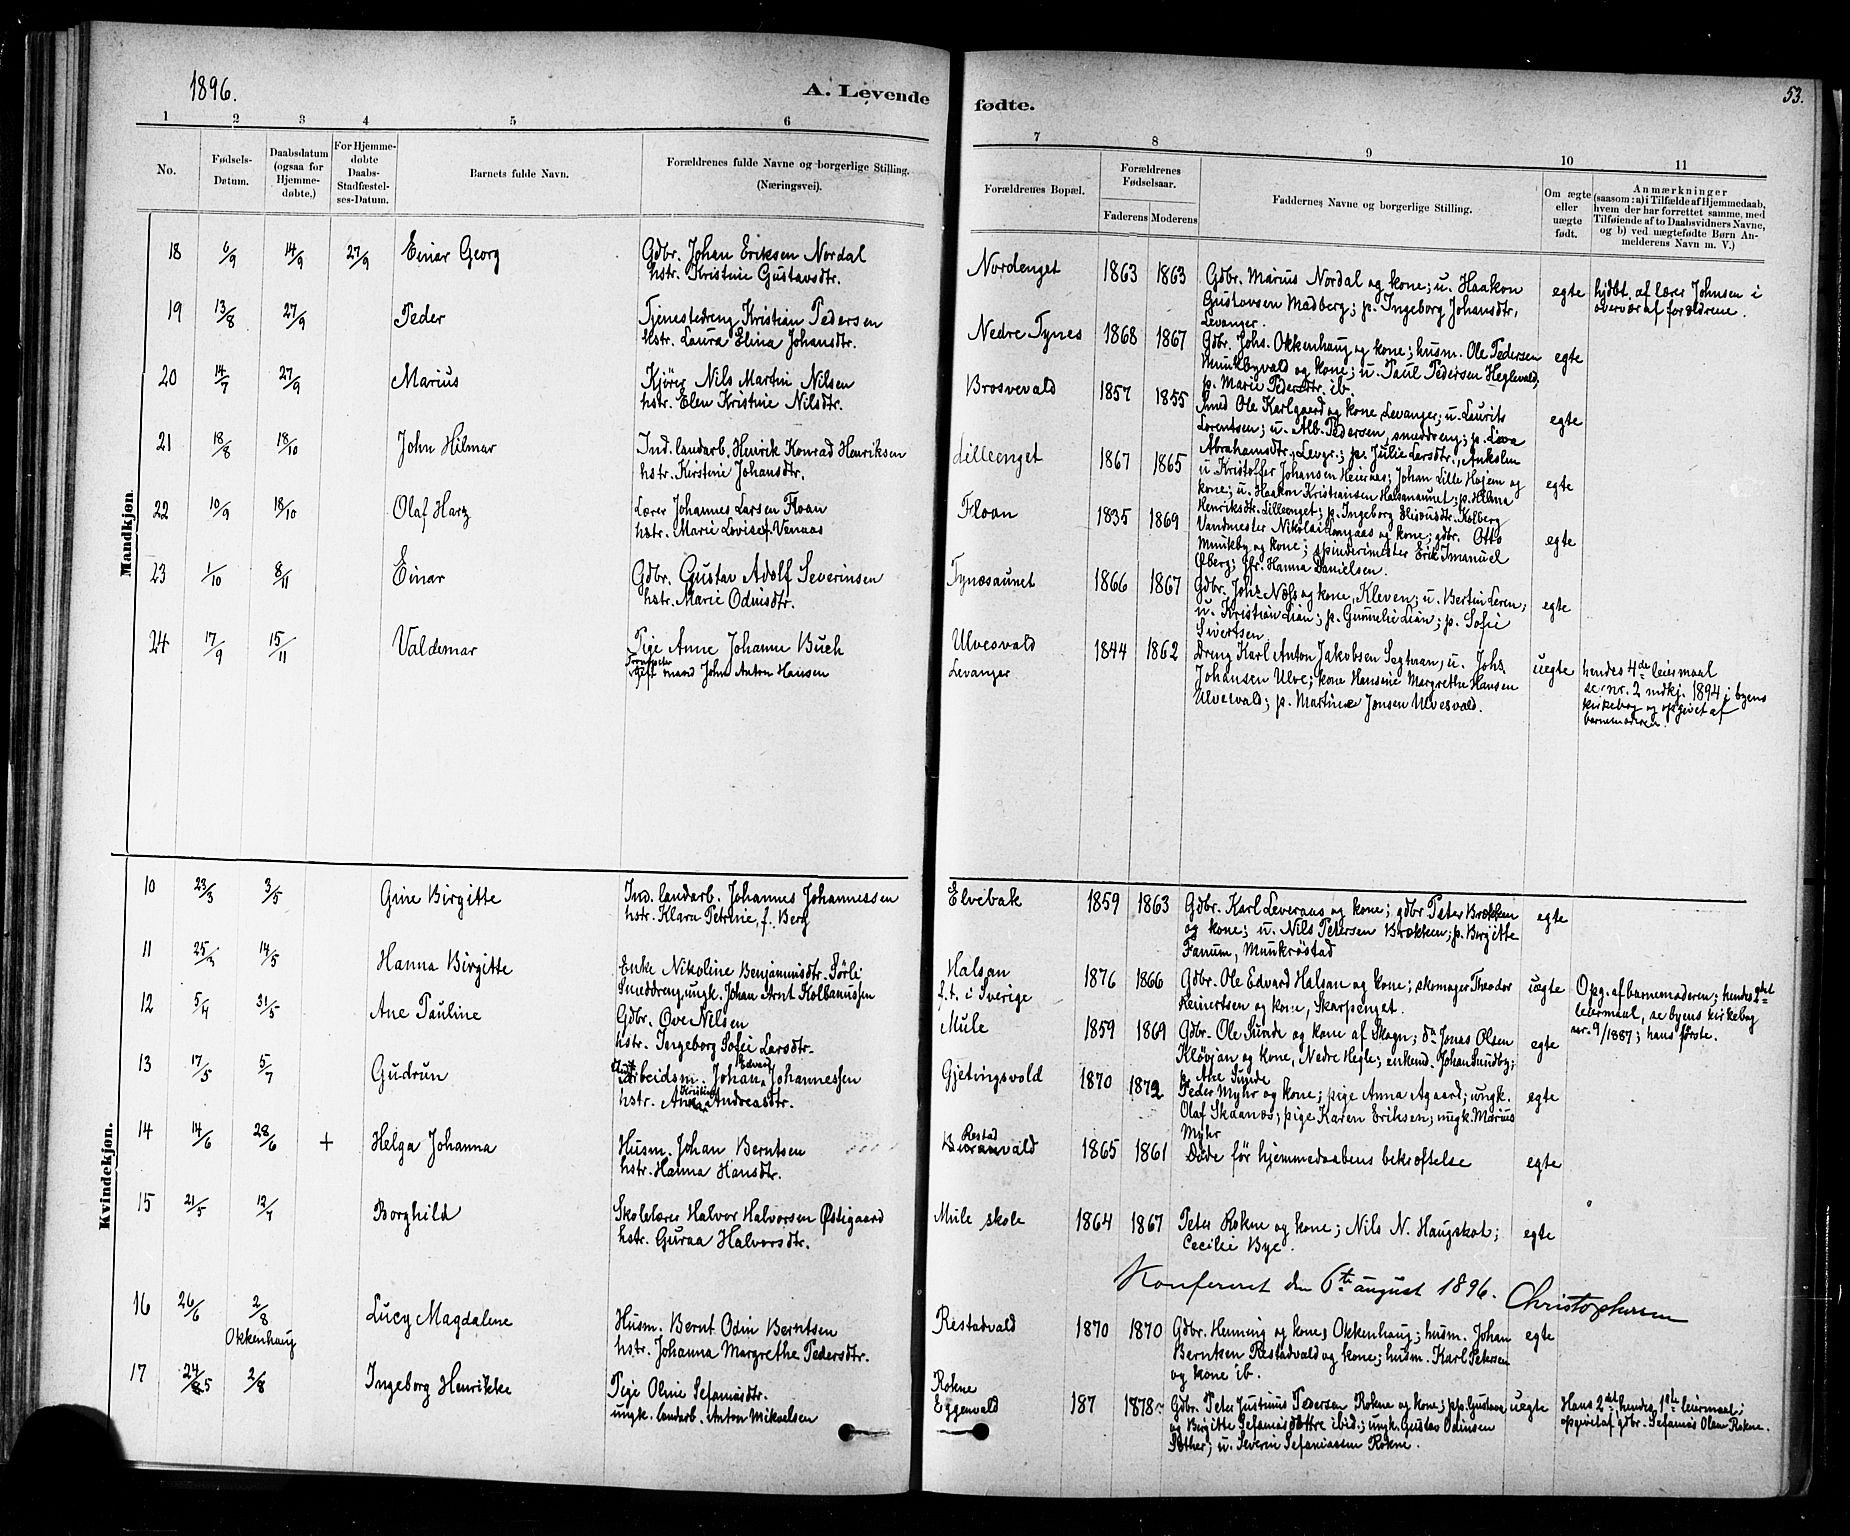 1896.
A. Levende
fødte.
53.
1 2 3 4 5 6
7 8 9 10 11
No.
Fødsels-
Datum.
Daabsdatum
(ogsaa for
Hjemme-
døbte.)
For Hjemme-
døbte
Daabs-
Stadfæstel-
ses-Datum.
Barnets fulde Navn.
Forældrenes fulde Navne og borgerlige Stilling.
(Næringsvei).
Forældrenes Bopæl.
Forældrenes
Fødselsaar.
Faderens Moderens
Faddernes Navne og borgerlige Stilling.
Om ægte
eller
uægte
født.
Anmærkninger
(saasom: a) i Tilfælde af Hjemmedaab,
hvem der har forrettet samme, med
Tilføiende af to Daabsvidners Navne,
og b) ved uægtefødte Børn An-
melderens Navn m. V.)
Mandkjøn.
18 6/9 14/9 27/9 Einar Georg
Gdbr. Johan Eriksen Nordal
hstr. Kristine Gustavsdtr.
Nordenget 1863 1863
Gdbr. Marius Nordal og kone; u. Haakon
Gustavsen Madberg; p. Ingeborg Johansdtr,
Levanger.
egte
hjdbt. af lærer Johnsen i
overvær af forældrene.
19 13/8 27/9 Peder
Tjenestedreng Kristian Pedersen
hstr. Laura Elina Johansdtr.
Nedre Tynes 1868 1867
Gdbr. Johs. Okkenhaug og kone; husm. Ole Pedersen
Munkbyvald og kone; u. Paul Pedersen Heglevald,
p. Marie Pedersdtr. ib.
egte
20 14/7 27/9 Marius
Kjører Nils Martin Nilsen
hstr. Elen Kristine Nilsdtr.
Brosvevald 1857 1855
Smed Ole Karlgaard og kone Levanger; u. Laurits
Lorentsen; u. Alb. Pedersen, smeddreng; p. Lova
Abrahamsdtr, Levgr.; p. Julie Larsdtr.,
egte
21 18/8 18/10 John Hilmar
Ind. landarb. Henrik Konrad Henriksen
hstr. Kirstine Johansdtr.
Lilleenget 1867 1865
u Kristoffer Johansen Heieraas; Johan Lille Hojem og
kone; u. Haakon Kristiansen Halsanaunet; p. Helma
Henriksdtr. Lilleenget; p. Ingeborg Kolberg
egte
22 10/9 18/10 Olaf Harz
Lærer Johannes Larsen Floan
hstr. Marie Lovise f. Vennaas
Floan 1835 1869
Vandmester Nikolai og kone; gdbr. Otto
Munkeby og kone; spinderimester Erik Imanuel
Øberg; fr. Hanna Danielsen.
egte
23 1/10 8/11 Einar
Gdbr. Gustav Adolf Severinsen
hstr. Marie Odinsdtr.
Tynæsaunet 1866 1867
Gdbr. Johs Næss og kone, Kleven; u. Bertin Leren;
u. Kristian Lian; p. Gunnelie Lian; p. Sofie
Sivertsen
egte
24 17/9 15/11 Valdemar
Pige Anne Johanne Buch
gift mand John Anton Hansen
Ulvesvald
Levanger
1844 1862
Dreng Karl Anton Jakobsen Segtnan, u. Johs
Johansen Ulve; kone Hansine Margrethe Hansen
Ulvesvald; p. Martine Jonsen Ulvesvald.
uegte
hendes 4de leiermaal
se nr. 2 mdkj. 1894 i byens
kirkebog og opgivet af
barnemoderen.
Kvindekjøn.
10 23/3 3/5 Gine Birgitte
Ind. landarb. Johannes Johannessen
hstr. Klara Petrine, f. Berg
Elvebak 1859 1863
Gdbr. Karl Leveraas og kone; gdbr Peter Brækken
og kone; u. Nils Petersen Brækken; p. Birgitte
Fanum, Munkrøstad
egte
11 25/3 14/5 Hanna Birgitte
Enke Nikoline Benjaminsdtr. Sørli
Smeddreng, ungk. Johan Arnt Kolbanussen
Halsan
f.t. i Sverige
1876 1866
Gdbr. Ole Edvard Halsan og kone; skomager Theodor
Reinertsen og kone, Skarpenget.
uegte
Opg. af barnemoderen; hendes 2det
leiermaal, se byens kirkebog
nr. 9/1887; hans første.
12 5/4 31/5 Ane Pauline
Gdbr. Ove Nilsen
hstr. Ingeborg Sofie Larsdtr.
Mule 1859 1869
Gdbr. Ole Sunde og kone af Skogn; do Jonas Olsen
Kløvjan og kone, Nedre Hegle; enkemd. Johan Sundby;
p. Ane Sunde
egte
13 17/5 5/7 Gudrun
Arbeidsm. Johan Edvard Johannessen
hstr. Anna Kristine Andreasdtr.
Gjetingsvold 1870 1872
Peder Myhr og kone; pige Anna Agaard; ungk.
Olaf Skaanes; pige Karen Eriksen; ungk. Marius
Myhr
egte
14 14/6 28/6 + Helga Johanna
Husm. Johan Berntsen
hstr. Hanna Hansdtr.
Restad
1865 1861
Døde før hjemmedaabens bekræftelse
egte
15 21/5 12/7 Borghild
Skolelærer Halvor Halvorsen Østigaard
hstr. Guraa Halvorsdtr.
Mule skole 1864 1867
Peter Rokne og kone; Nils N. Haugskot;
Cecilie Bye.
egte
Konfereret den 6te august 1896. Christophersen
16 26/6 2/8 Lucy Magdalene
Okkenhaug
Husm. Bernt Odin Berntsen
hstr. Johanna Margrethe Pedersdtr.
Restadvald 1870 1870
Gdbr. Henning og kone, Okkenhaug; husm. Johan
Berntsen Restadvald og kone; husm. Karl Petersen
og kone ib.
egte
17 24/5 2/8 Ingeborg Henrikke
Pige Oline Sefaniasdtr.
ungk. landarb. Anton Mikaelsen
Rokne
Eggenvald
187 1878
Gdbr. Peter Justinus Pedersen Rokne og kone; pp. Gustava
og Birgitte Sefaniasdøttre ibid; ungk. Gustav Odinsen
Sæther; u. Severin Sefaniassen Rokne.
uegte
Hans 2det, hendes 1ste leiermaal;
opgivet af gdbr. Sefanias Olsen Rokne.